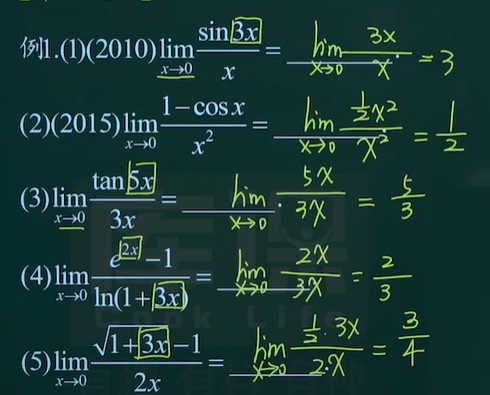 例1.(1)(2010) lim_{x→0} \frac{sin3x}{x} = lim_{x→0} \frac{3x}{x} = 3
(2)(2015) lim_{x→0} \frac{1-cosx}{x^2} = lim_{x→0} \frac{\frac{1}{2}x^2}{x^2} = \frac{1}{2}
(3) lim_{x→0} \frac{tan5x}{3x} = lim_{x→0} \frac{5x}{3x} = \frac{5}{3}
(4) lim_{x→0} \frac{e^{2x}-1}{ln(1+3x)} = lim_{x→0} \frac{2x}{3x} = \frac{2}{3}
(5) lim_{x→0} \frac{\sqrt{1+3x}-1}{2x} = lim_{x→0} \frac{\frac{1}{2}·3x}{2·x} = \frac{3}{4}